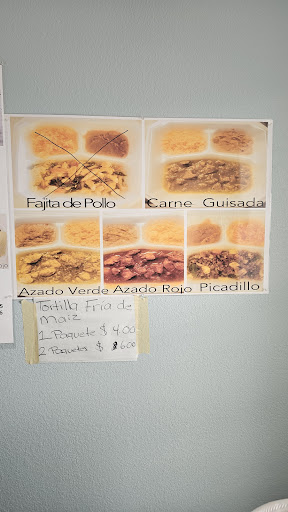 Fajita de Pollo
Carne Guisada
Azado Verde
Azado Rojo
Picadillo
Tortilla Fria de
maiz
1 Paquete $ 4.00
2 Paquetes $ 6.00